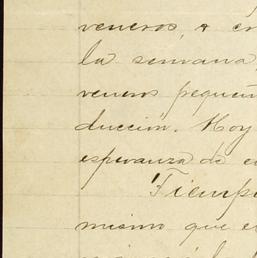 veneros, a
la semana,
veneros pequeñ
duccion. Hoy
esperanza de e
Tiemp
mismo que e